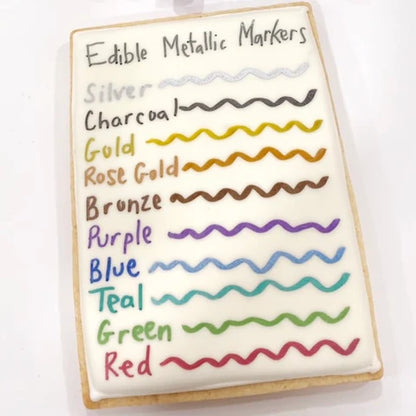 Edible Metallic Markers
Silver
Charcoal
Gold
Rose Gold
Bronze
Purple
Blue
Teal
Green
Red